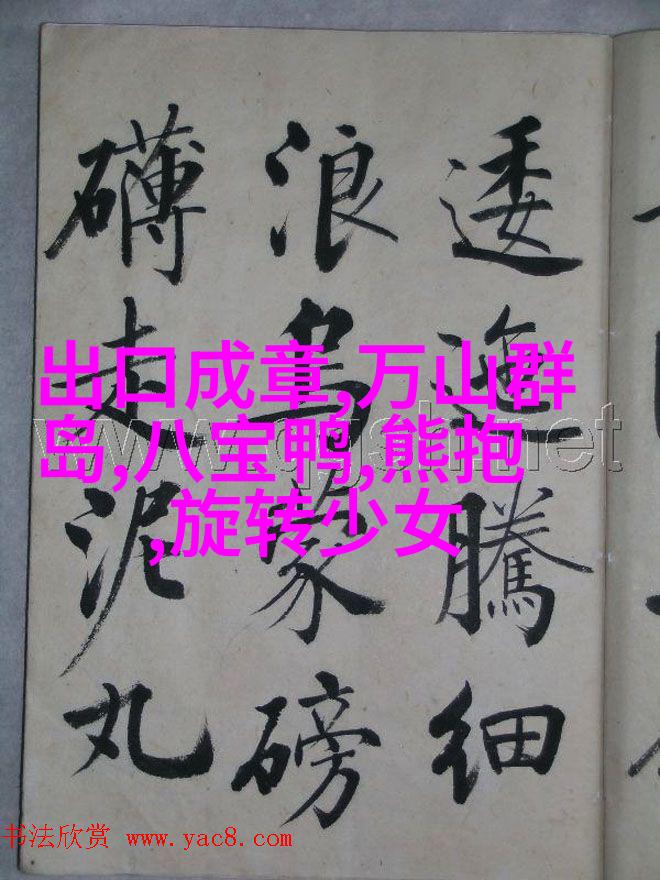 逶迤騰細
浪烏蒙磅
礴走泥丸
出口成章,万山群
岛,八宝鸭,熊抱
,旋转少女
书法欣赏 www.yac8.com